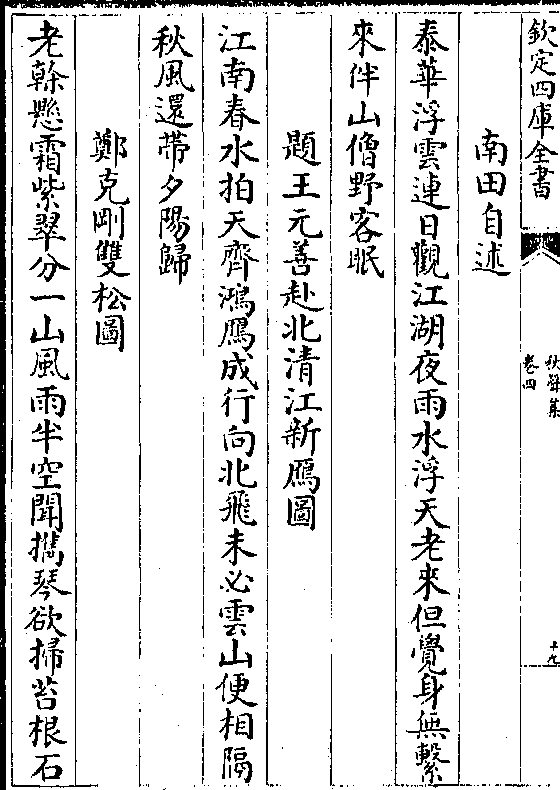 欽定四庫全書
秋聲集
卷四
十九
南田自述
泰華浮雲連日觀江湖夜雨水浮天老來但覺身無繫
來伴山僧野客眠
題王元善赴北清江新鴈圖
江南春水拍天齊鴻鴈成行向北飛未必雲山便相隔
秋風還帶夕陽歸
鄭克剛雙松圖
老榦懸霜紫翠分一山風雨半空聞攜琴欲掃苔根石